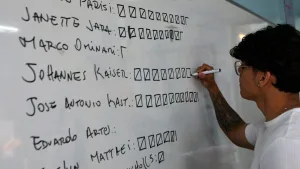 PARISI:
JANETTE JARA:
MARCO OMINAMI:
JOHANNES KAISER:
JOSE ANTONIO KAST..
EDUARDO ARTES:
MATTHEI: